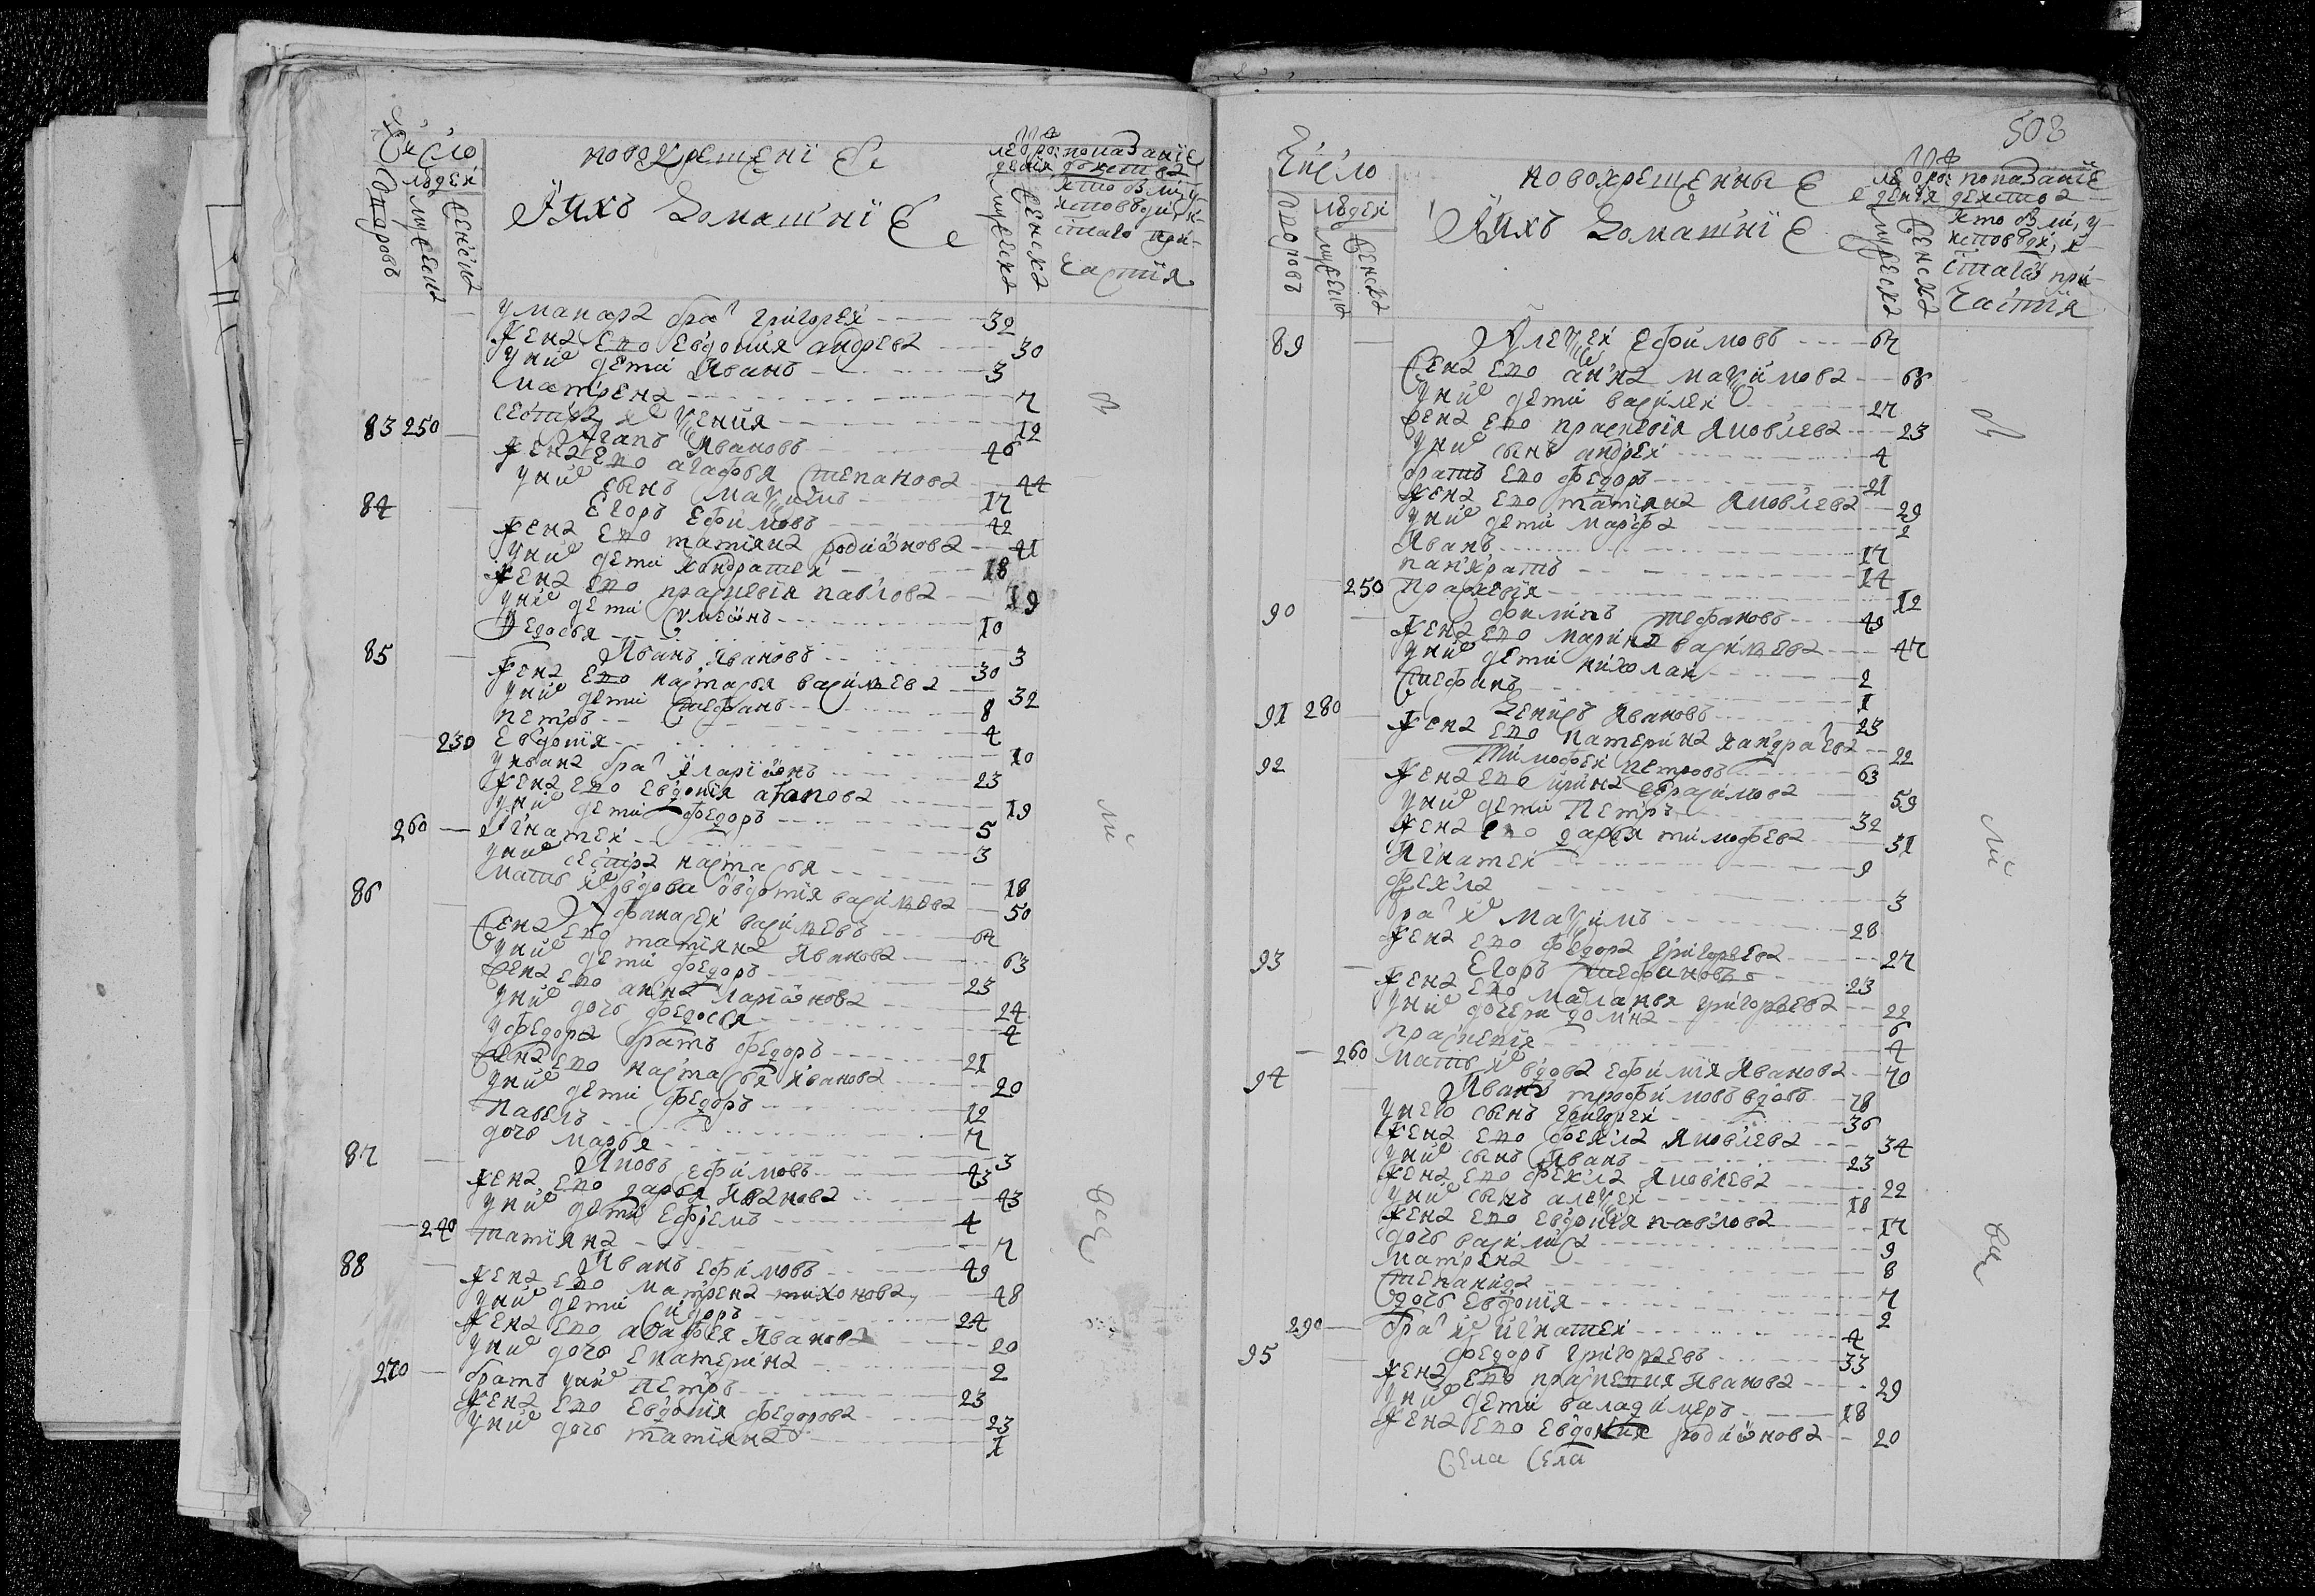 Число
людей
дворовъ
мужеска
женска
новокрещениi е
Ихъ Домашнiе
лѣ ѿ рож
дения
мужеска
женска
показанiе
хто были у
исповѣди и
святаго при
частия
у макара бра григорей 32
жена его евдотия андреева 30
у них дети Иванъ 3
матрена 7
сестра их ксения 12
83 250 Агапъ Ивановъ 46
жена его агафья степанова 44
у них сынъ максимъ 17
84 Егоръ Ефимовъ 42
жена его татияна родионова 41
у них дети кондратей 18
жена его прасковия павлова 19
у них дети симеонъ 10
Федосья 3
85 Иванъ Ивановъ 30
жена его настасья васильева 32
у них дети стефанъ 8
петръ 4
230 Евдотия 10
у ивана бра иларионъ 23
жена его евдотия агапова 19
у них дети федоръ 5
260 Игнатей 3
у них сестра настасья 18
мать их вдова овдотия васильева 50
86 Афанасей васильевъ 67
жена его татияна Иванова 63
у них дети федоръ 23
жена его анна ларионова 24
у них дочь федосья 4
у федора братъ федоръ 21
жена его настасья иванова 20
у них дети федоръ 12
павелъ 7
дочь марья 3
87 Яковъ Ефимовъ 43
жена его дарья Иванова 43
у них дети ефремъ 4
240 татияна 7
88 Иванъ ефимовъ 49
жена его матрена тихонова 48
у них дети сидоръ 24
жена его агафья Иванова 20
у них дочь екатерина 2
270 братъ у них петръ 23
жена его евдотия федорова 23
у них дочь татияна 1
в
ли
вси
508
Число
людей
дворовъ
мужеска
женска
новокрещенные
Ихъ Домашнiе
лѣ ѿ рож
дения
мужеска
женска
показанiе
хто были у
исповѣди и
святаго при
частия
89 Алексей Ефимовъ 67
жена его анна максимова 66
у них дети василей 27
жена его прасковия Яковлева 23
у них сынъ андрей 4
братъ его федоръ 21
жена его татияна Яковлева 29
у них дети марфа 2
Иванъ 17
панкратъ 14
250 прасковия 12
90 филипъ стефановъ 49
жена его марина васильева 47
у них дети николай 2
стефанъ 1
91 280 Денисъ Ивановъ 23
жена его катерина кандратева 22
92 Тимофей петровъ 63
жена его ирина герасимова 59
у них дети Петръ 32
жена его дарья тимофеева 31
Игнатей 9
фекла 3
бра их максимъ 28
жена его федора григорьева 27
93 Егоръ стефановъ 23
жена его маланья григорьева 22
у них дочери домна 6
прасковия 4
260 мать их вдова ефимия Иванова 70
94 Иванъ трофимовъ вдовъ 78
у него сынъ григорей 36
жена его фекла Яковлева 34
у них сынъ Иванъ 23
жена его фекла Яковлева 22
у них сынъ алексей 18
жена его евдотия павлова 17
дочь василиса 9
матрена 8
степанида 7
дочь евдотия 2
290 бра их игнатей 4
95 федоръ григорьевъ 33
жена его прасковия Иванова 29
у них дети валадимеръ 18
жена его евдокия родионова 20
в
ли
вси
села села